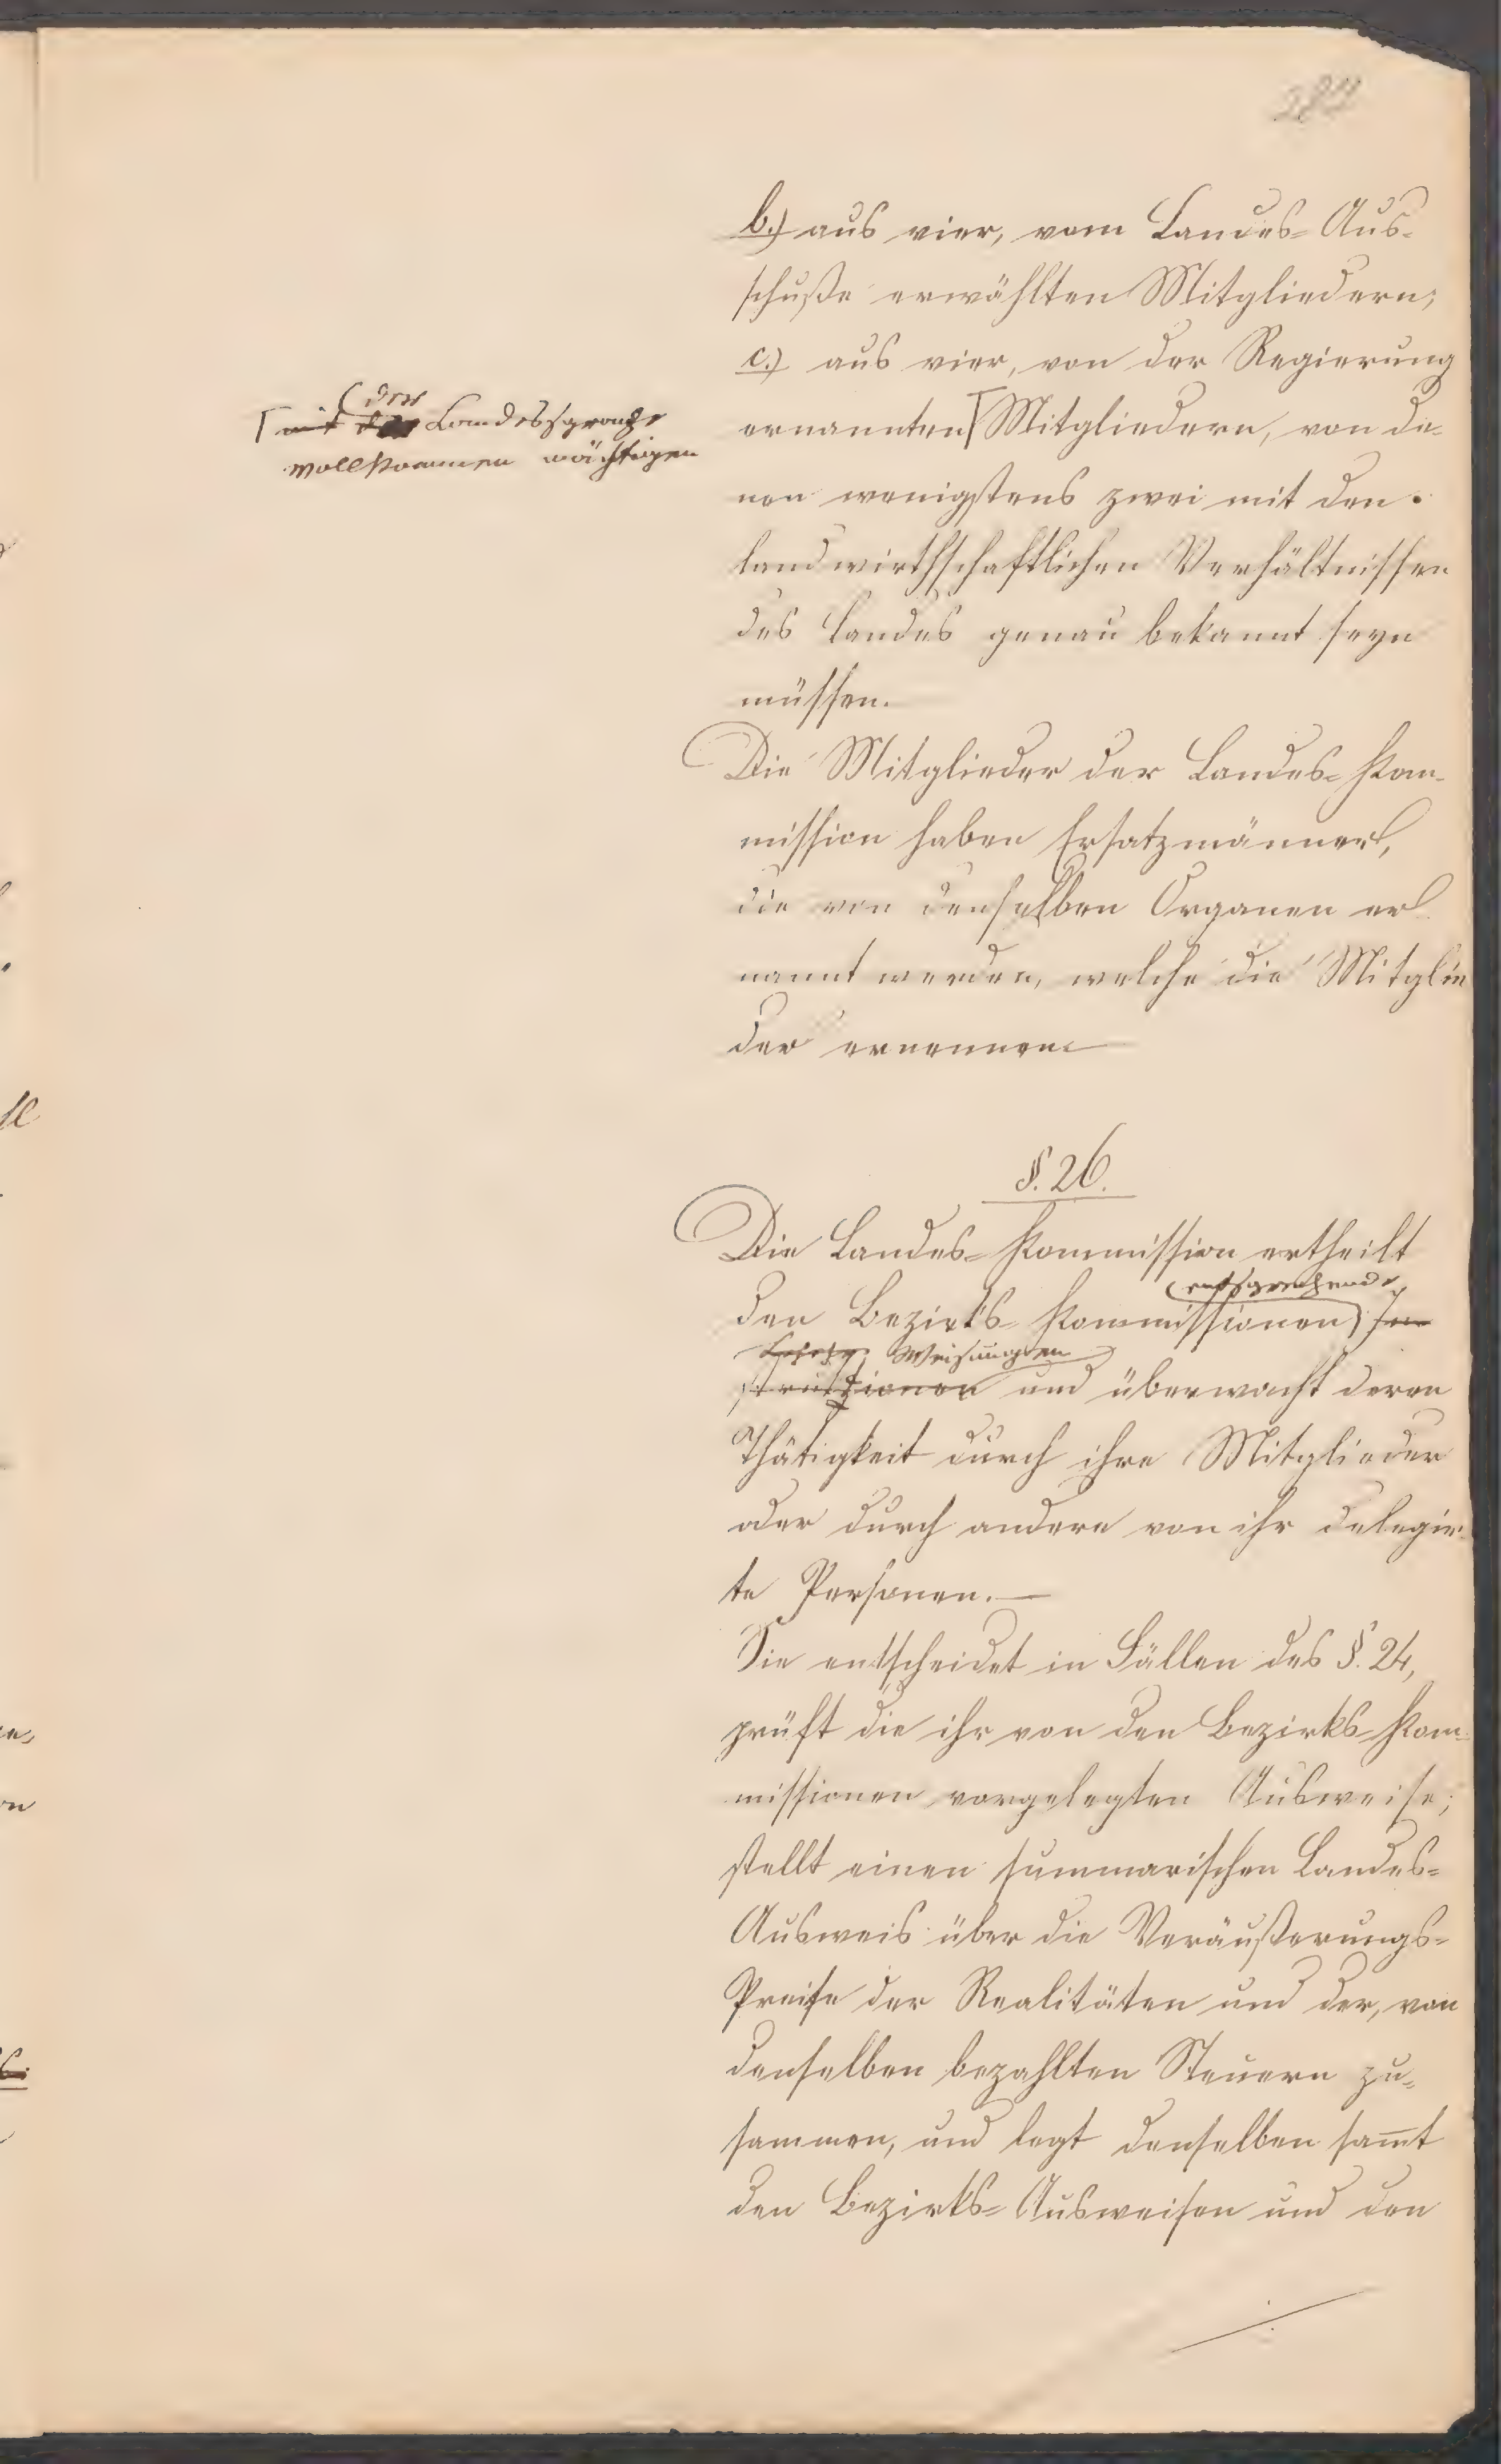 b.) aus vier, vom Landes-Aus-
schuße erwählten Mitgliedern;
c.) aus vier, von der Regierung
der
mit der Landessprache
vollkommen mächtigen
ernannten Mitgliedern, von de-
nen wenigstens zwei mit den
landwirthschaftlichen Verhältnissen
des Landes genau bekannt seyn
müssen.
Die Mitglieder der Landes-Kom-
mission haben Ersatzmänner,
die von denselben Organen er-
nannt werden, welche die Mitglie
der ernennen.
§. 26.
Die Landes-Kommission ertheilt
entsprechende
den Bezirks-Kommissionen In-
Weisungen
struktionen und überwacht deren
Thätigkeit durch ihre Mitglieder
oder durch andere von ihr delegir-
te Personen.—
Sie entscheidet in Fällen des §. 24,
prüft die ihr von den Bezirks-Kom-
missionen vorgelegten Ausweise;
stellt einen summarischen Landes-
Ausweis über die Veräußerungs-
Preise der Realitäten und der, von
denselben bezahlten Steuern zu-
sammen, und legt denselben sam̄t
den Bezirks-Ausweisen und den